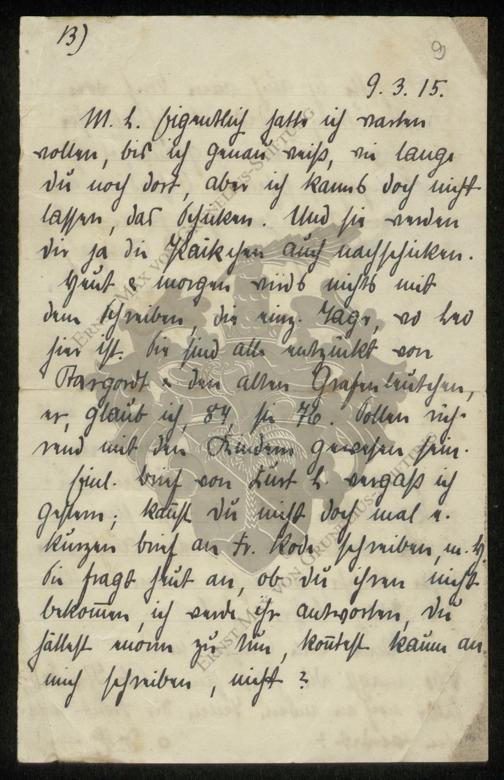 13)
9
9. 3. 15.
M. L. Eigentlich hatte ich warten
wollen, bis ich genau weiß, wie lange
du noch dort, aber ich kanns doch nicht
lassen, das Schicken. Und sie werden
dir ja die nachschicken.
Heut & morgen wirds nichts mit
dem Schreiben, die einz. Tage, wo Leo
hier ist. Sie sind alle entzückt von
Stargordt & den alten Grafenleutchen,
er, glaub ich, 84, sie 76. Sollen rüh-
rend mit den Kindern gewesen sein.
Brief von Kurt L. vergaß ich
gestern; kannst Du nicht doch mal e.
kurzen Brief an Fr. schreiben, m. H.
Sie fragt heut an, ob du ihren nicht
bekom̄en, ich werde ihr antworten, Du
hättest enorm zu tun, kon̄test kaum an
mich schreiben, nicht?
ERNST MAX VON GRUNELIUS-STIFTUNG
ERNST MAX VON GRUNELIUS-STIFTUNG